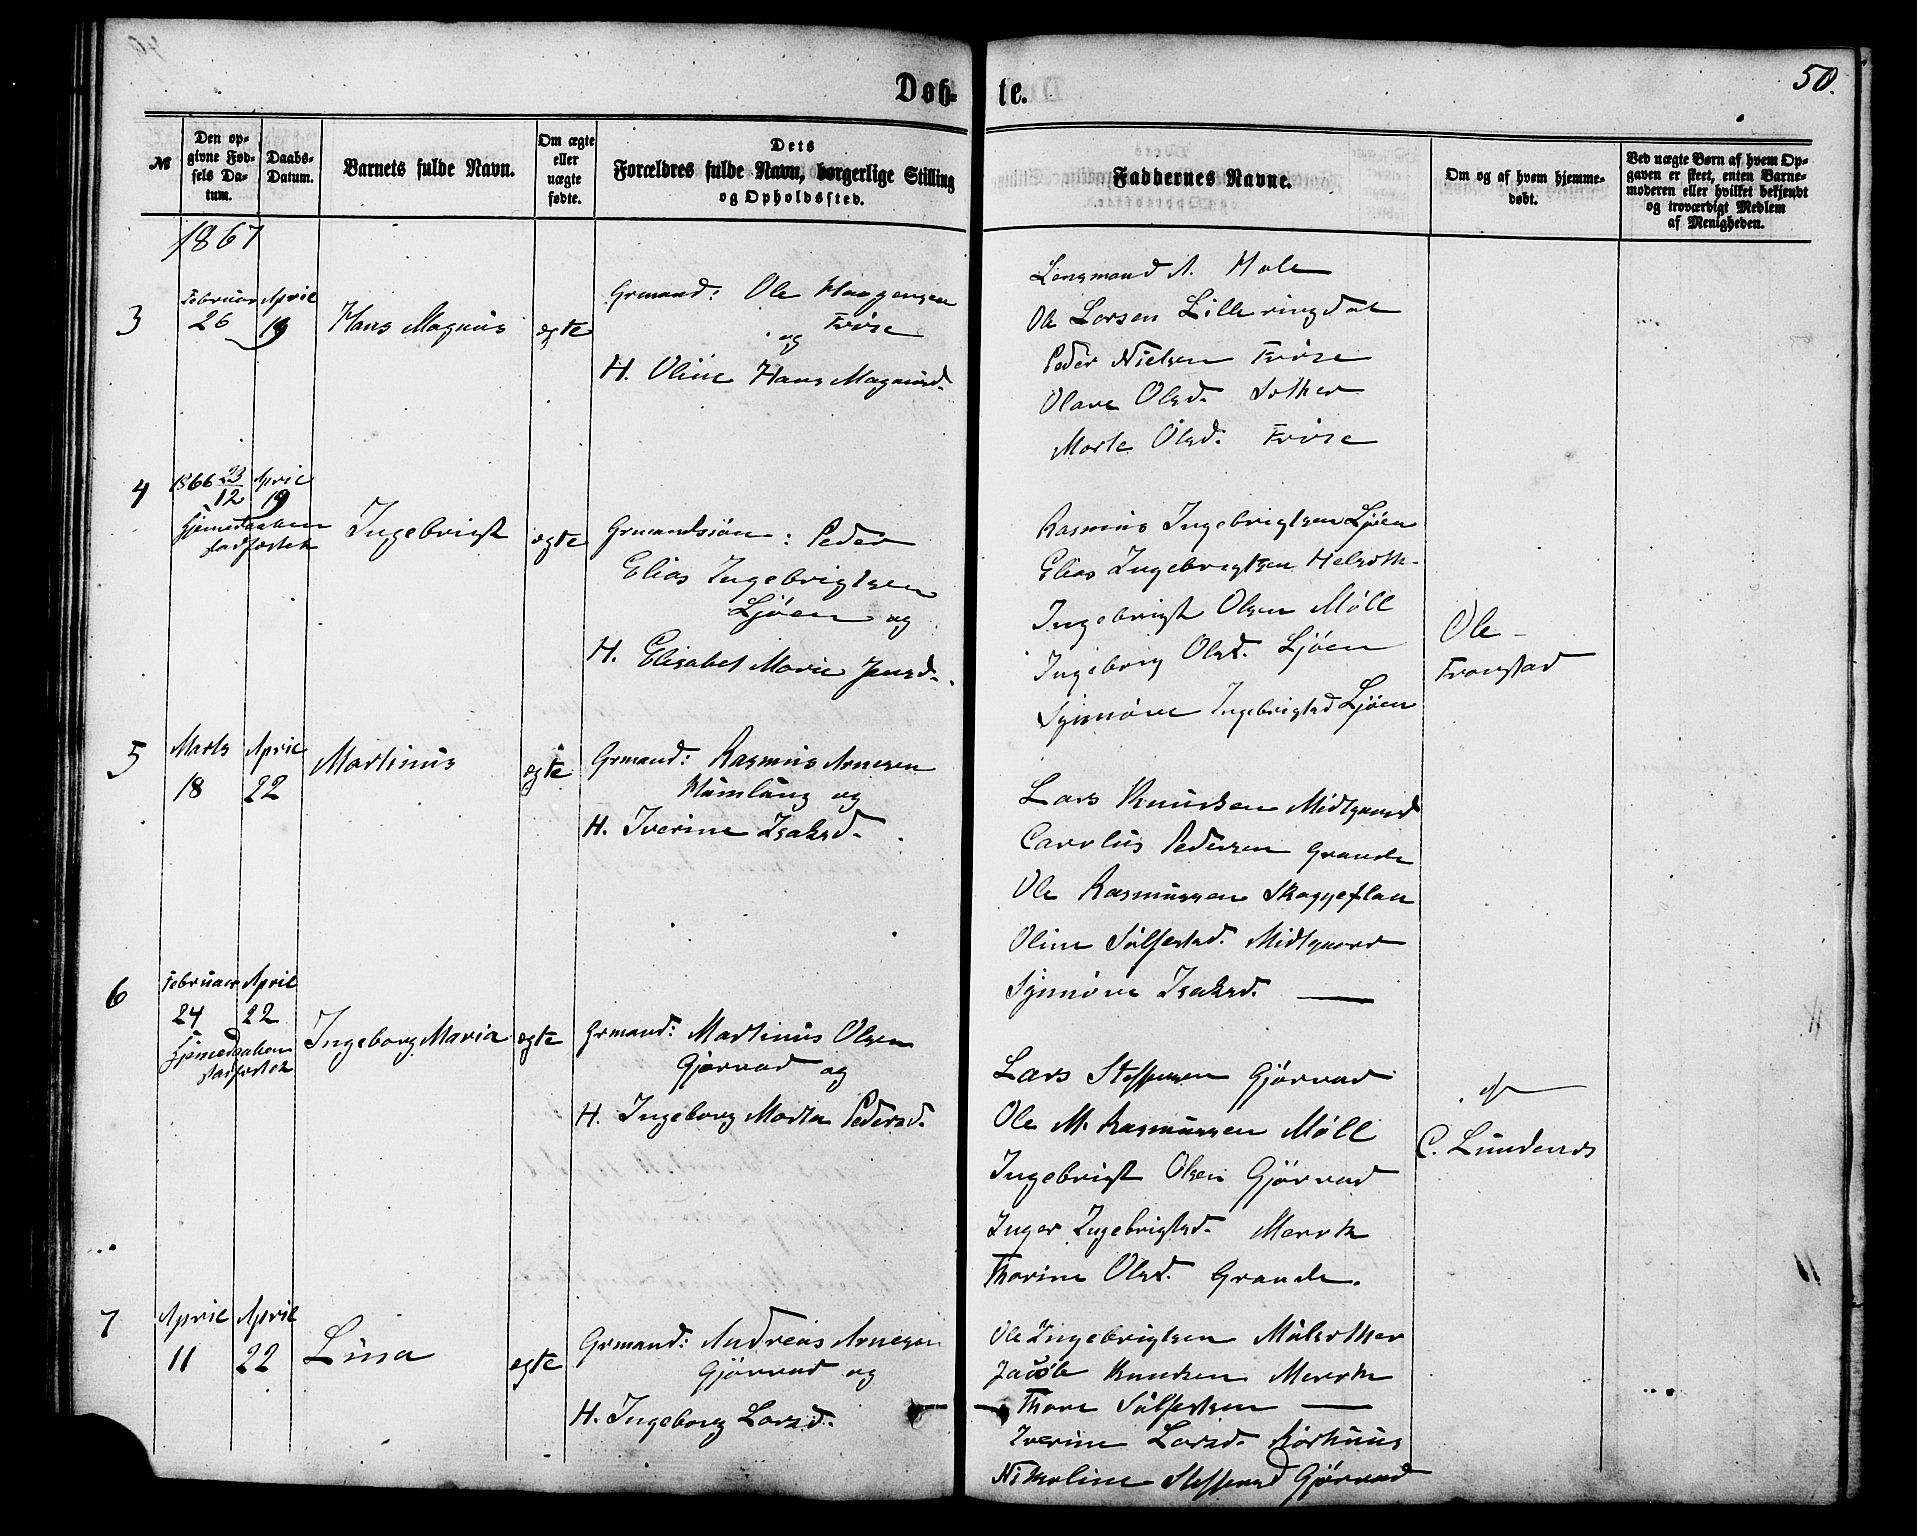 50.
Døb- te.
№
Den op-
givne Fød-
sels Da-
tum.
Daabs-
Datum.
Barnets fulde Navn.
Om ægte
eller
uægte
fødte.
Dets
Forældres fulde Navn, borgerlige Stilling
og Opholdssted.
Faddernes Navne.
Om og af hvem hjemme-
døbt.
Ved uægte Børn af hvem Op-
gaven er skeet, enten Barne-
moderen eller hvilket bekjendt
og troværdigt Medlem
af Menigheden.
1867
3
Februar
26
April
19
Hans Magnus
egte
Grmand: Ole Haagensen
og
H. Oline Hans Magnusd.
Lensmand A. Hole
Ole Larsen Lilleringdal
Peder Nielsen
Olave Olsd.
Olsd.
4
1866 23/12
April
19
Hjemedaaben
stadfæstet
Ingebrigt
egte
Grmandssøn: Peder
Elias Ingebrigtsen
Ljøen og
H. Elisabet Marie Jensd.
Rasmus Ingebrigtsen Ljøen
Elias Ingebrigtsen
Ingebrigt Olsen Møll
Ingeborg Olsd. Ljøen
Synnøve Ingebrigtsd Ljøen
Ole
5
Marts
18
April
22
Martinus
egte
Grmand: Rasmus Arnesen
Humlung og
H. Iverine Isaksd.
Lars Knudsen Midtgaard
Carolus Pedersen Grande
Ole Rasmussen Skaggeflaa
Oline Sølfestsd. Midtgaard
Synnøve Isaksd. —
6
Februar
24
April
22
Hjemedaaben
stadfæstet
Ingeborg Maria
egte
Grmand: Martinus Olsen
Gjørvad og
H. Ingeborg Marta Pedersd.
Lars Steffensen Gjørvad
Ole M. Rasmussen Møll
Ingebrigt Olsen Gjørvad
Inger Ingebrigtsd. Merok
Thorine Olsd. Grande.
af
C. Lundanes
7
April
11
April
22
Lina
egte
Grmand: Andreas Arnesen
Gjørvad og
H. Ingeborg Larsd.
Ole Ingebrigtsen
Jacob Knudsen Merok
Thore Sølfestsen —
Iverine Larsd.
Nikoline Steffensd Gjørvad